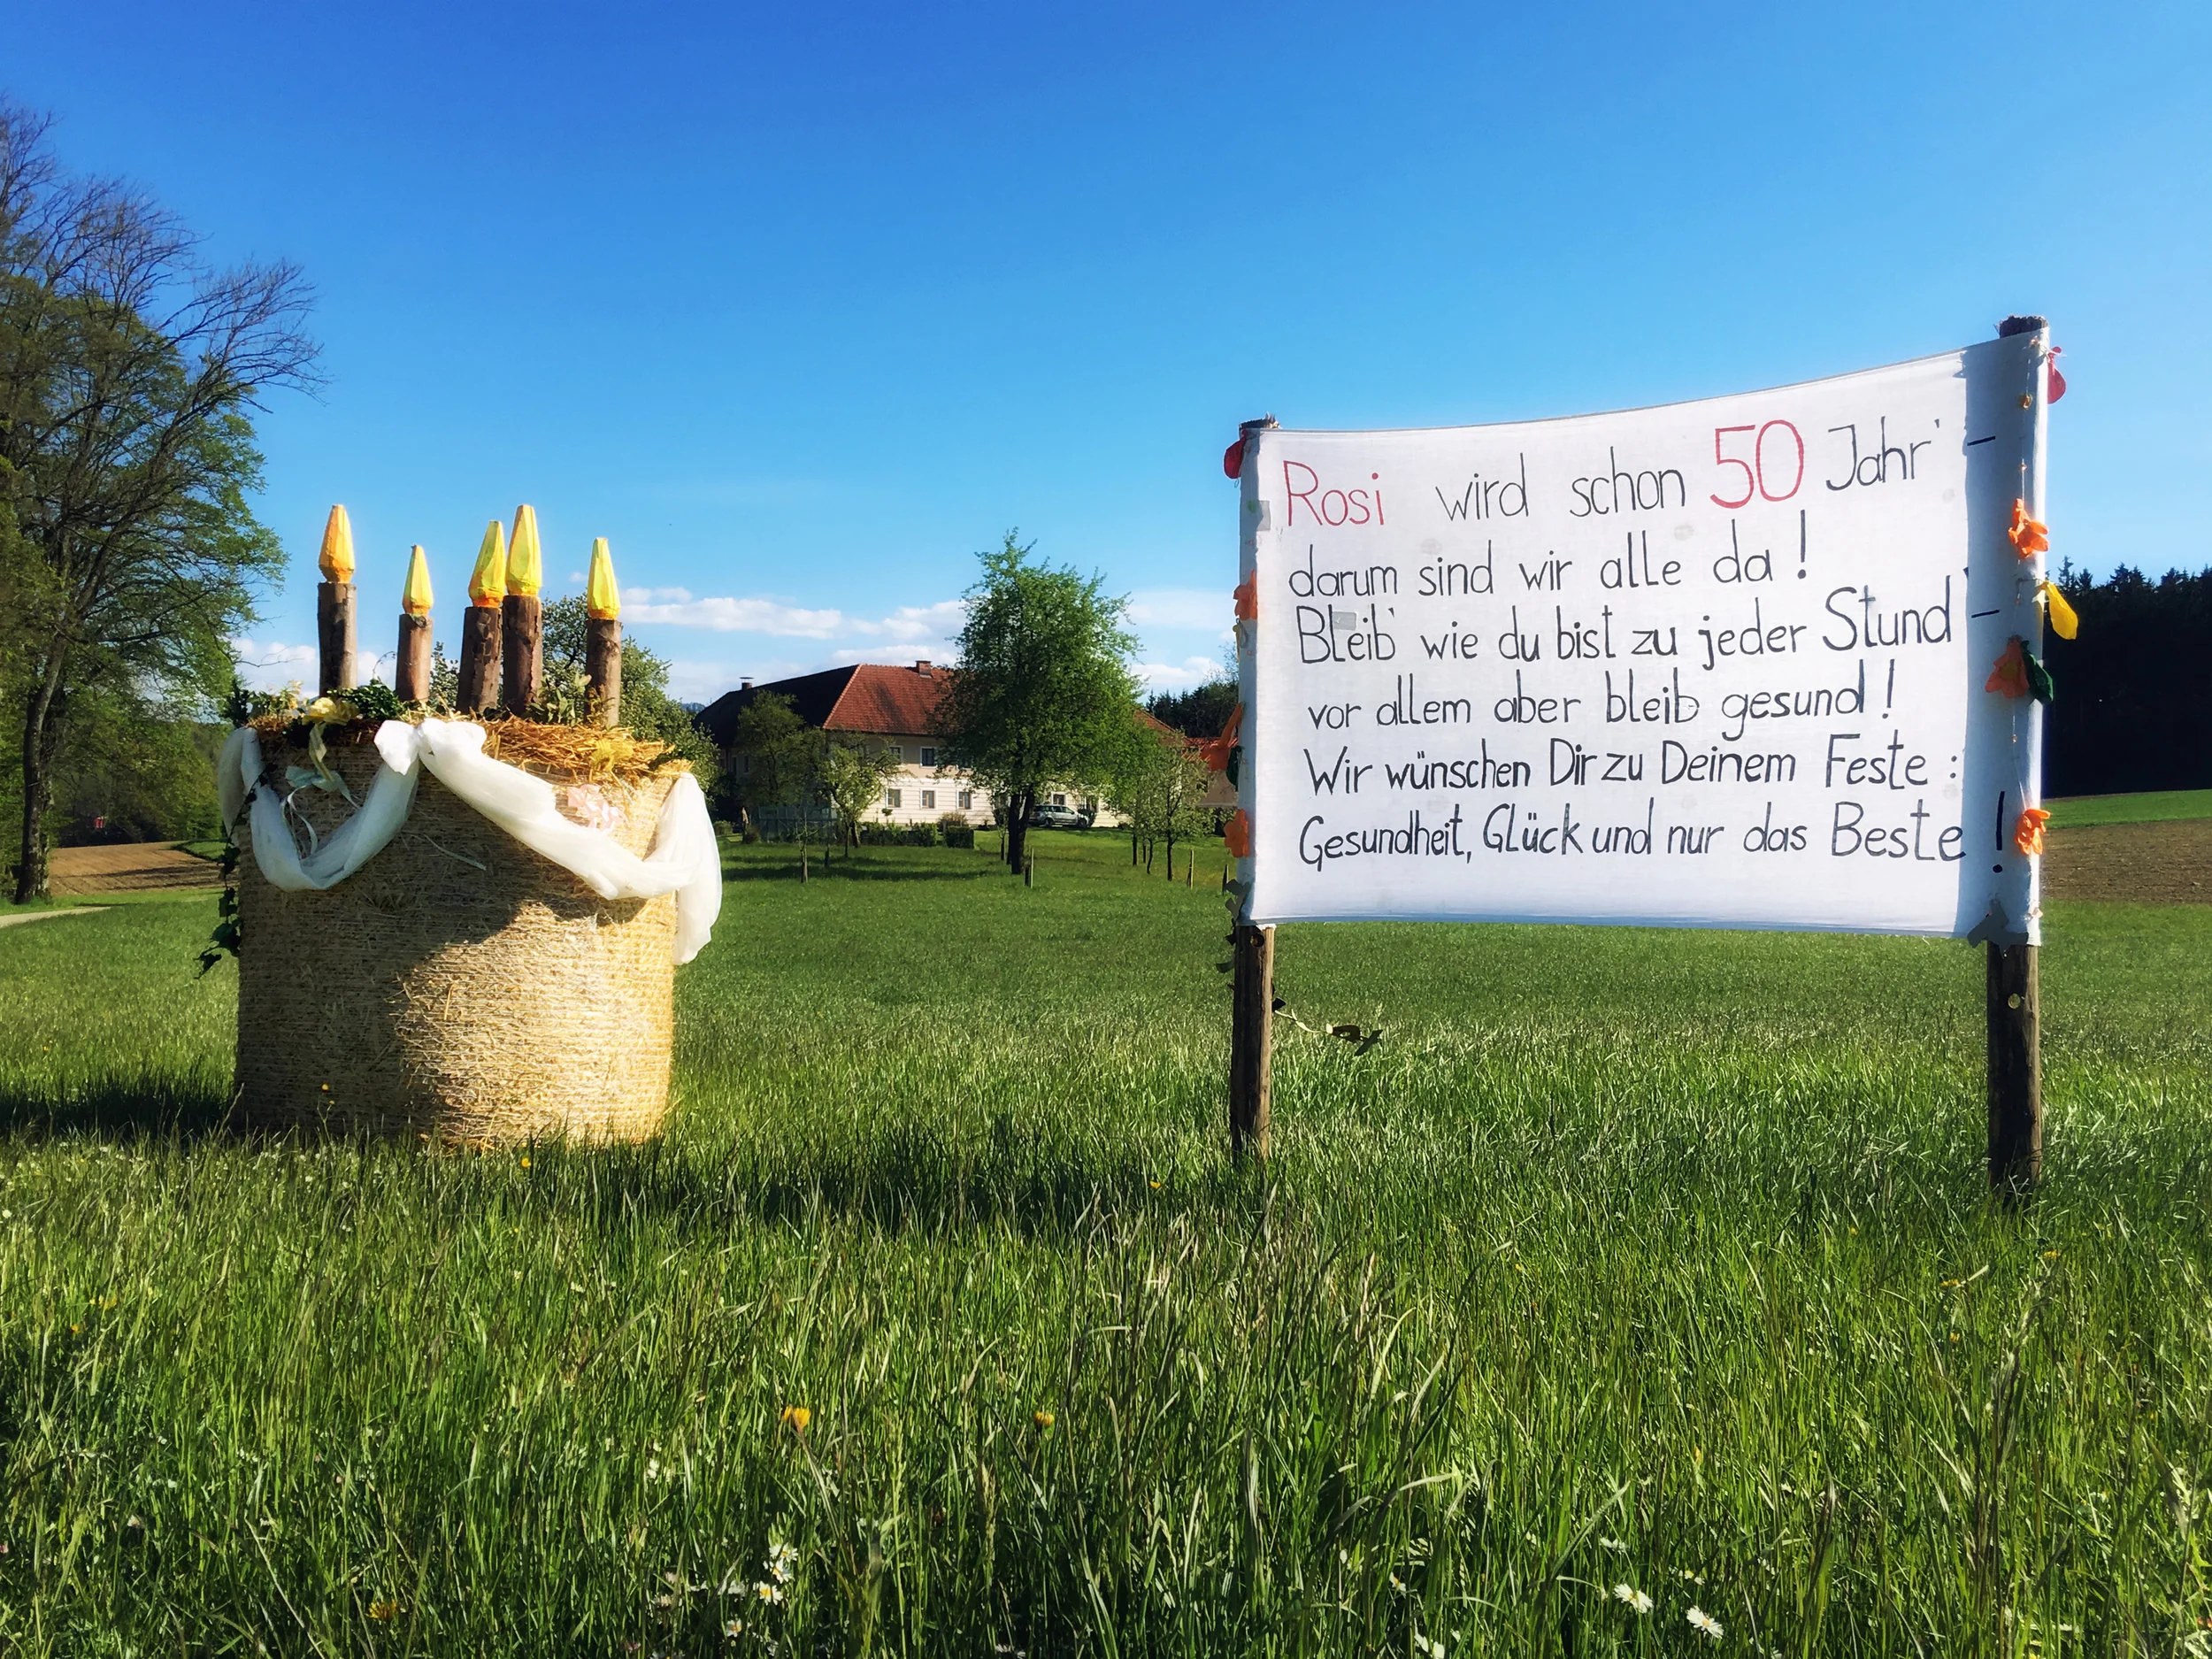 Rosi wird schon 50 Jahr' -
darum sind wir alle da!
Bleib' wie du bist zu jeder Stund' -
vor allem aber bleib gesund!
Wir wünschen Dir zu Deinem Feste:
Gesundheit, Glück und nur das Beste!